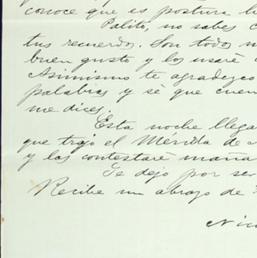 conoce que es postura
Palito, no sabes
tus recuerdos. Son todos
buen gusto y los usaré
Asimismo te agradezco
palabras y sé que
me dices.
Esta noche
que trajo el Mérida de
y las contestaré
Te dejo por ser
Recibe un abrazo de